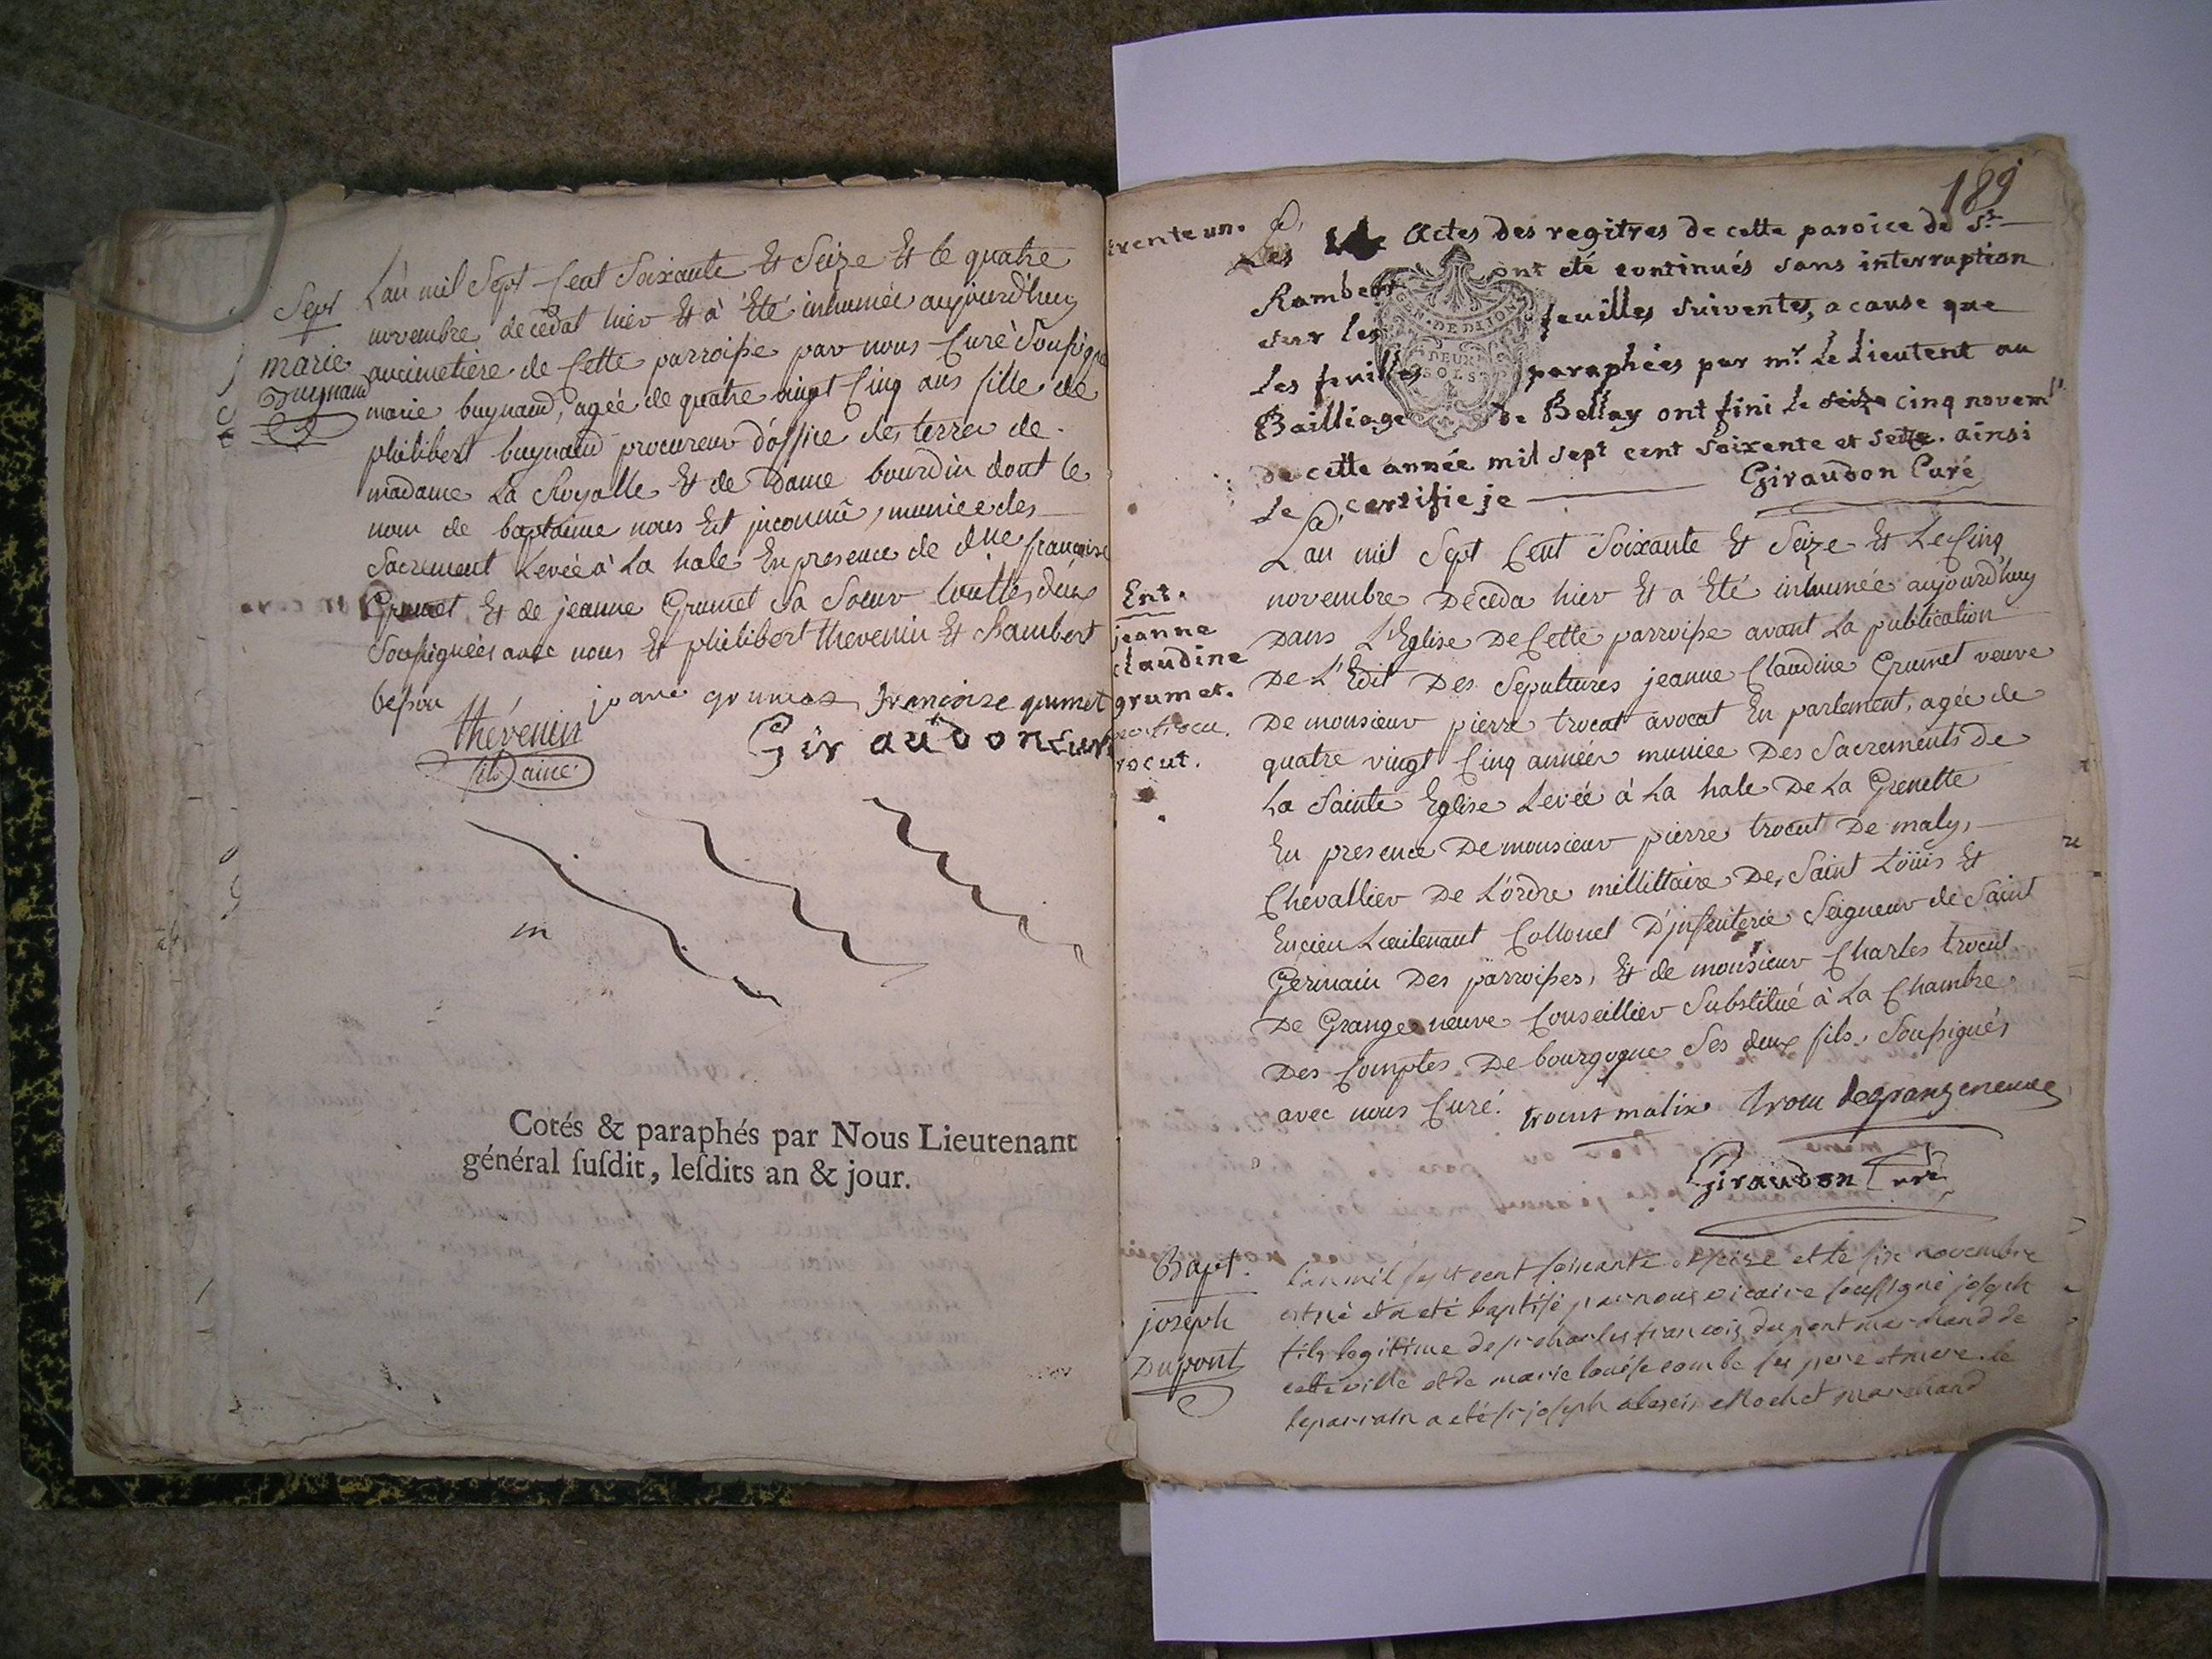 Sept
marie
Buynand
L'an mil Sept Cent Soixante Et Seize Et le quatre
novembre decedat hier Et à Eté inhumée aujourd'huy
aucimetiere de Cette parroisse par nous Curé Soussigné
marie buynand, agée de quatre vingt Cinq ans fille de
philibert buynand procureur d'office des terres de
madame La Royalle Et de Dame bourdin dont le
nom de baptaime nous Est inconnû, muniée des
Sacrement Levée à La hale En presence de dlle françoise
Grumet Et de jeanne Grumet Sa Soeur touttes deux
Soussignées avec nous Et philibert thevenin Et Rambert
besson
thévenin
fils ainé
jeane grumet françoise grumet
Giraudon Curé
Cotés & paraphés par Nous Lieutenant
général ſuſdit, leſdits an & jour.
189
trente un.
Les Actes des regitres de cette paroice de St
Rambert ont été continués sans interruption
sur les feuilles suiventes, a cause que
GEN. DE DIJON
DEUX
SOLS
les feuilles paraphées par mr. Le Lieutent au
Bailliage de Bellay ont fini le cinq novem
de cette année mil sept cent soixente et seize. ainsi
le certifie je Giraudon Curé
Ent.
jeanne
claudine
grumet.
L'an mil Sept Cent Soixante Et Seize Et Le Cinq
novembre Deceda hier Et a Eté inhumée aujourd'huy
Dans L'Eglise De Cette parroisse avant La publication
De L'Edit Des Sepultures jeanne Claudine Grumet veuve
De monsieur pierre trocut avocat En parlement, agée de
quatre vingt Cinq années muniée Des Sacrements De
La Sainte Eglise Levée à La hale De La Grenette
En presence De monsieur pierre trocut De maly,
Chevallier De L'ordre millittaire De Saint Loüis Et
Encien Lieutenant Collonel D'infenterie Seigneur de Saint
Germain Des parroisses, Et de monsieur Charles trocut
De Grange neuve Conseillier Substitué à La Chambre
Des Comptes De bourgogne Ses deux fils Soussignés
avec nous Curé.
trocut malix trocu degrangeneuve
Giraudon Curé
Bapt.
joseph
Dupont
l'an mil sept cent soixante et seize et le six novembre
est né et a eté baptisé par nous vicaire soussigné joseph
fils legitime de sr charles françois dupont marchand de
cette ville et de marie louise combe ses pere et mere. le
le parrain a eté sr joseph alexis Rochet marchand